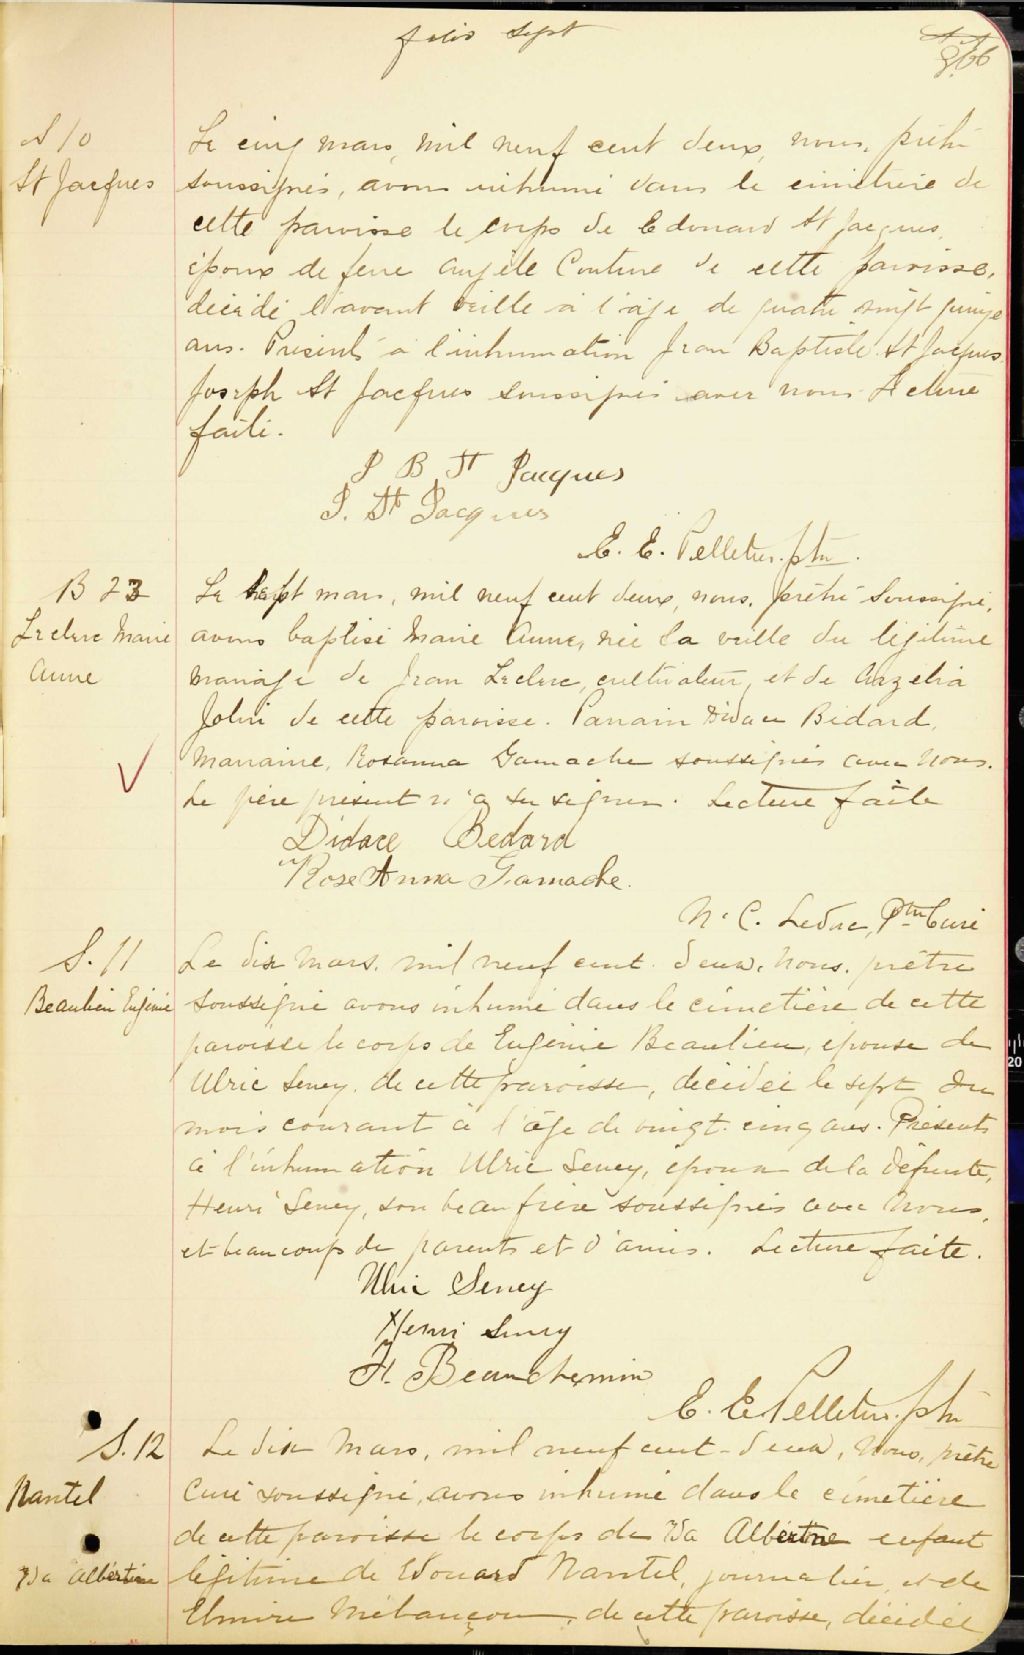 folio sept
366
S 10
St Jacques
Le cinq mars, mil neuf cent deux, nous, prêtre
soussignés, avons inhumé dans le cimetière de
cette paroisse le corps de Edouard St Jacques,
époux de feue Angèle Couture de cette paroisse,
décédé l'avant veille à l'âge de quatre vingt quinze
ans. Présents à l'inhumation Jean Baptiste St Jacques
Joseph St Jacques soussignés avec nous Lecture
faite.
J B St Jacques
J. St Jacques
E. E. Pelletier. ptre.
B 23
Leclerc Marie
Anne
Le sept mars, mil neuf cent deux, nous, prêtre soussigné,
avons baptisé Marie Anne, née la veille du légitime
mariage de Jean Leclerc, cultivateur, et de
de cette paroisse. Parrain Didace Bédard,
Marraine, Rosanna Gamache soussignés avec nous.
Le père présent n'a su signer. Lecture faite
Didace Bedard
Rose Anna Gamache.
N. C. Leduc, Ptre Curé
S. 11
Beaulieu Eugénie
Le dix Mars. mil neuf cent deux, Nous, prêtre
soussigné avons inhumé dans le cimetière de cette
paroisse le corps de Eugénie Beaulieu, épouse de
Ulric Seney, de cette paroisse, décédée le sept du
mois courant à l'âge de vingt-cinq ans. Présents
à l'inhumation Ulric Seney, époux de la défunte,
Henri Seney, son beau frère soussignés avec Nous,
et beaucoup de parents et d'amis. Lecture faite.
Ulric Seney
Henri Seney
H. Beauchemin
E. E. Pelletier. ptre
S. 12
Nantel
Ida Albertine
Le dix Mars, mil neuf cent-deux, Nous, prêtre
Curé soussigné, avons inhumé dans le cimetière
de cette paroisse le corps de Ida Albertine enfant
légitime de Edouard Nantel, journalier, et de
Elmire Mélançon, de cette paroisse, décédée